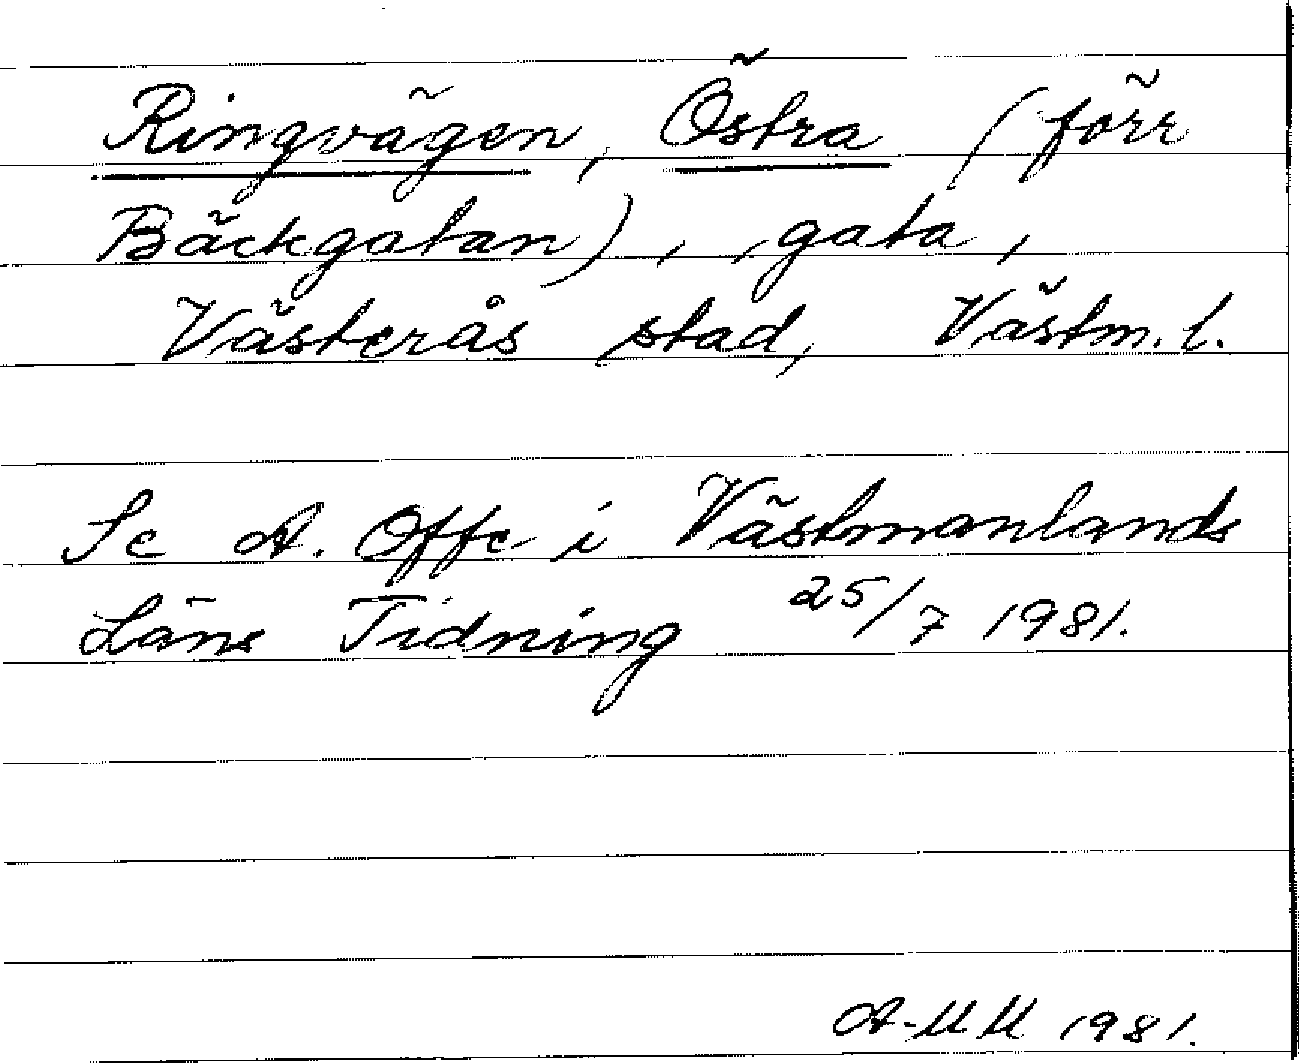 Ringvägen, Östra (förr
Bäckgatan), gata,
Västerås stad, Västm. l.
Se A. Offe i Västmanlands
Läns Tidning 25/7 1981.
A-MM 1981.